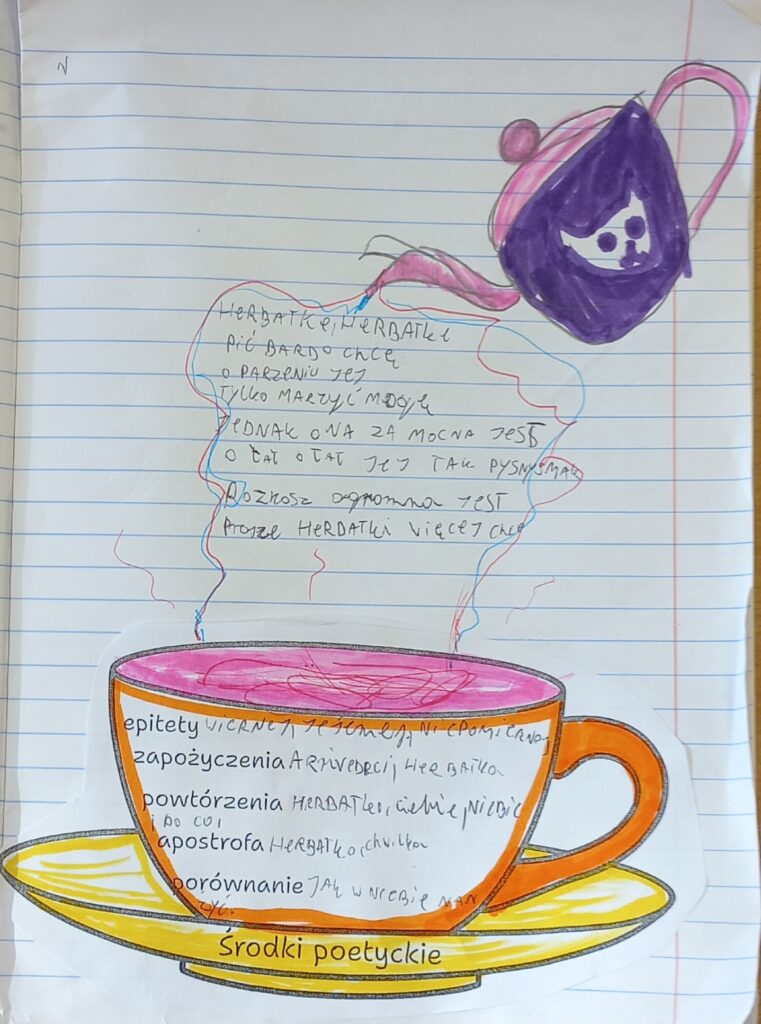 HERBATKĘ, HERBATKĘ
PIĆ BARDO CHCĘ
O PARZENIU JEJ
TYLKO MARZYĆ MOGĘ
JEDNAK ONA ZA MOCNA JEST
O JEJ TAK PYSNY SMAK
ROZKOSZ OGROMNA JEST
PROSZE HERBATKI VIĘCEJ CHCĘ
epitety WIERNEJ, JESIENNEJ, NIEPOMIERNA
zapożyczenia ARIVEDRCI, HERBATKA
powtórzenia HERBATKO, ciebie, NIEBIE
i DO CO,
apostrofa HERBATKO, chwilko
porównanie JAK W NIEBIE NAM
ŻYĆ.
Środki poetyckie